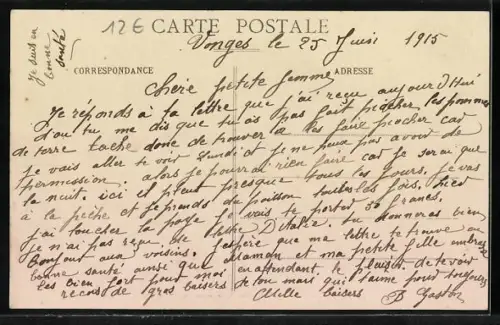 12€
CARTE POSTALE
Je suis en
bonne
santé
Vonges le 25 Juin 1915
CORRESPONDANCE
ADRESSE
Chère petite femme
Je réponds à ta lettre que j'ai reçu aujourd'hui
d'ou tu me dis que tu as pas fait piocher les pommes
de terre tache donc de trouver a les faire piocher car
je vais aller te voir lundi et je ne peux pas avoir de
permission. alors je pourrai rien faire car je serai que
la nuit. ici il pleut presque tous les jours, je vas
à la pêche et je prends du poisson toutes les fois, hier
j'ai toucher la paye je vais te porter 30 francs,
je n'ai pas reçu de lettre D'Italie. tu donneras bien
Bonjour aux voisins. J'espère que ma lettre te trouve en
bonne santé ainsi que Maman et ma petite fille embrasse
les bien fort pour moi en attendant le plaisir de te voir
recois de gros baisers de ton mari qui t'aime pour toujours
Mille baisers
B Gaston